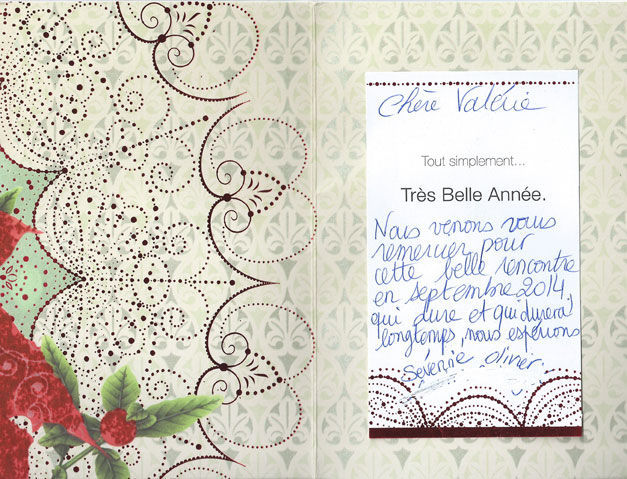 Chère Valérie
Tout simplement...
Très Belle Année.
Nous venons vous
remercier pour
cette belle rencontre
en septembre 2014,
qui dure et qui durera
longtemps, nous espérons
Séverine Olivier